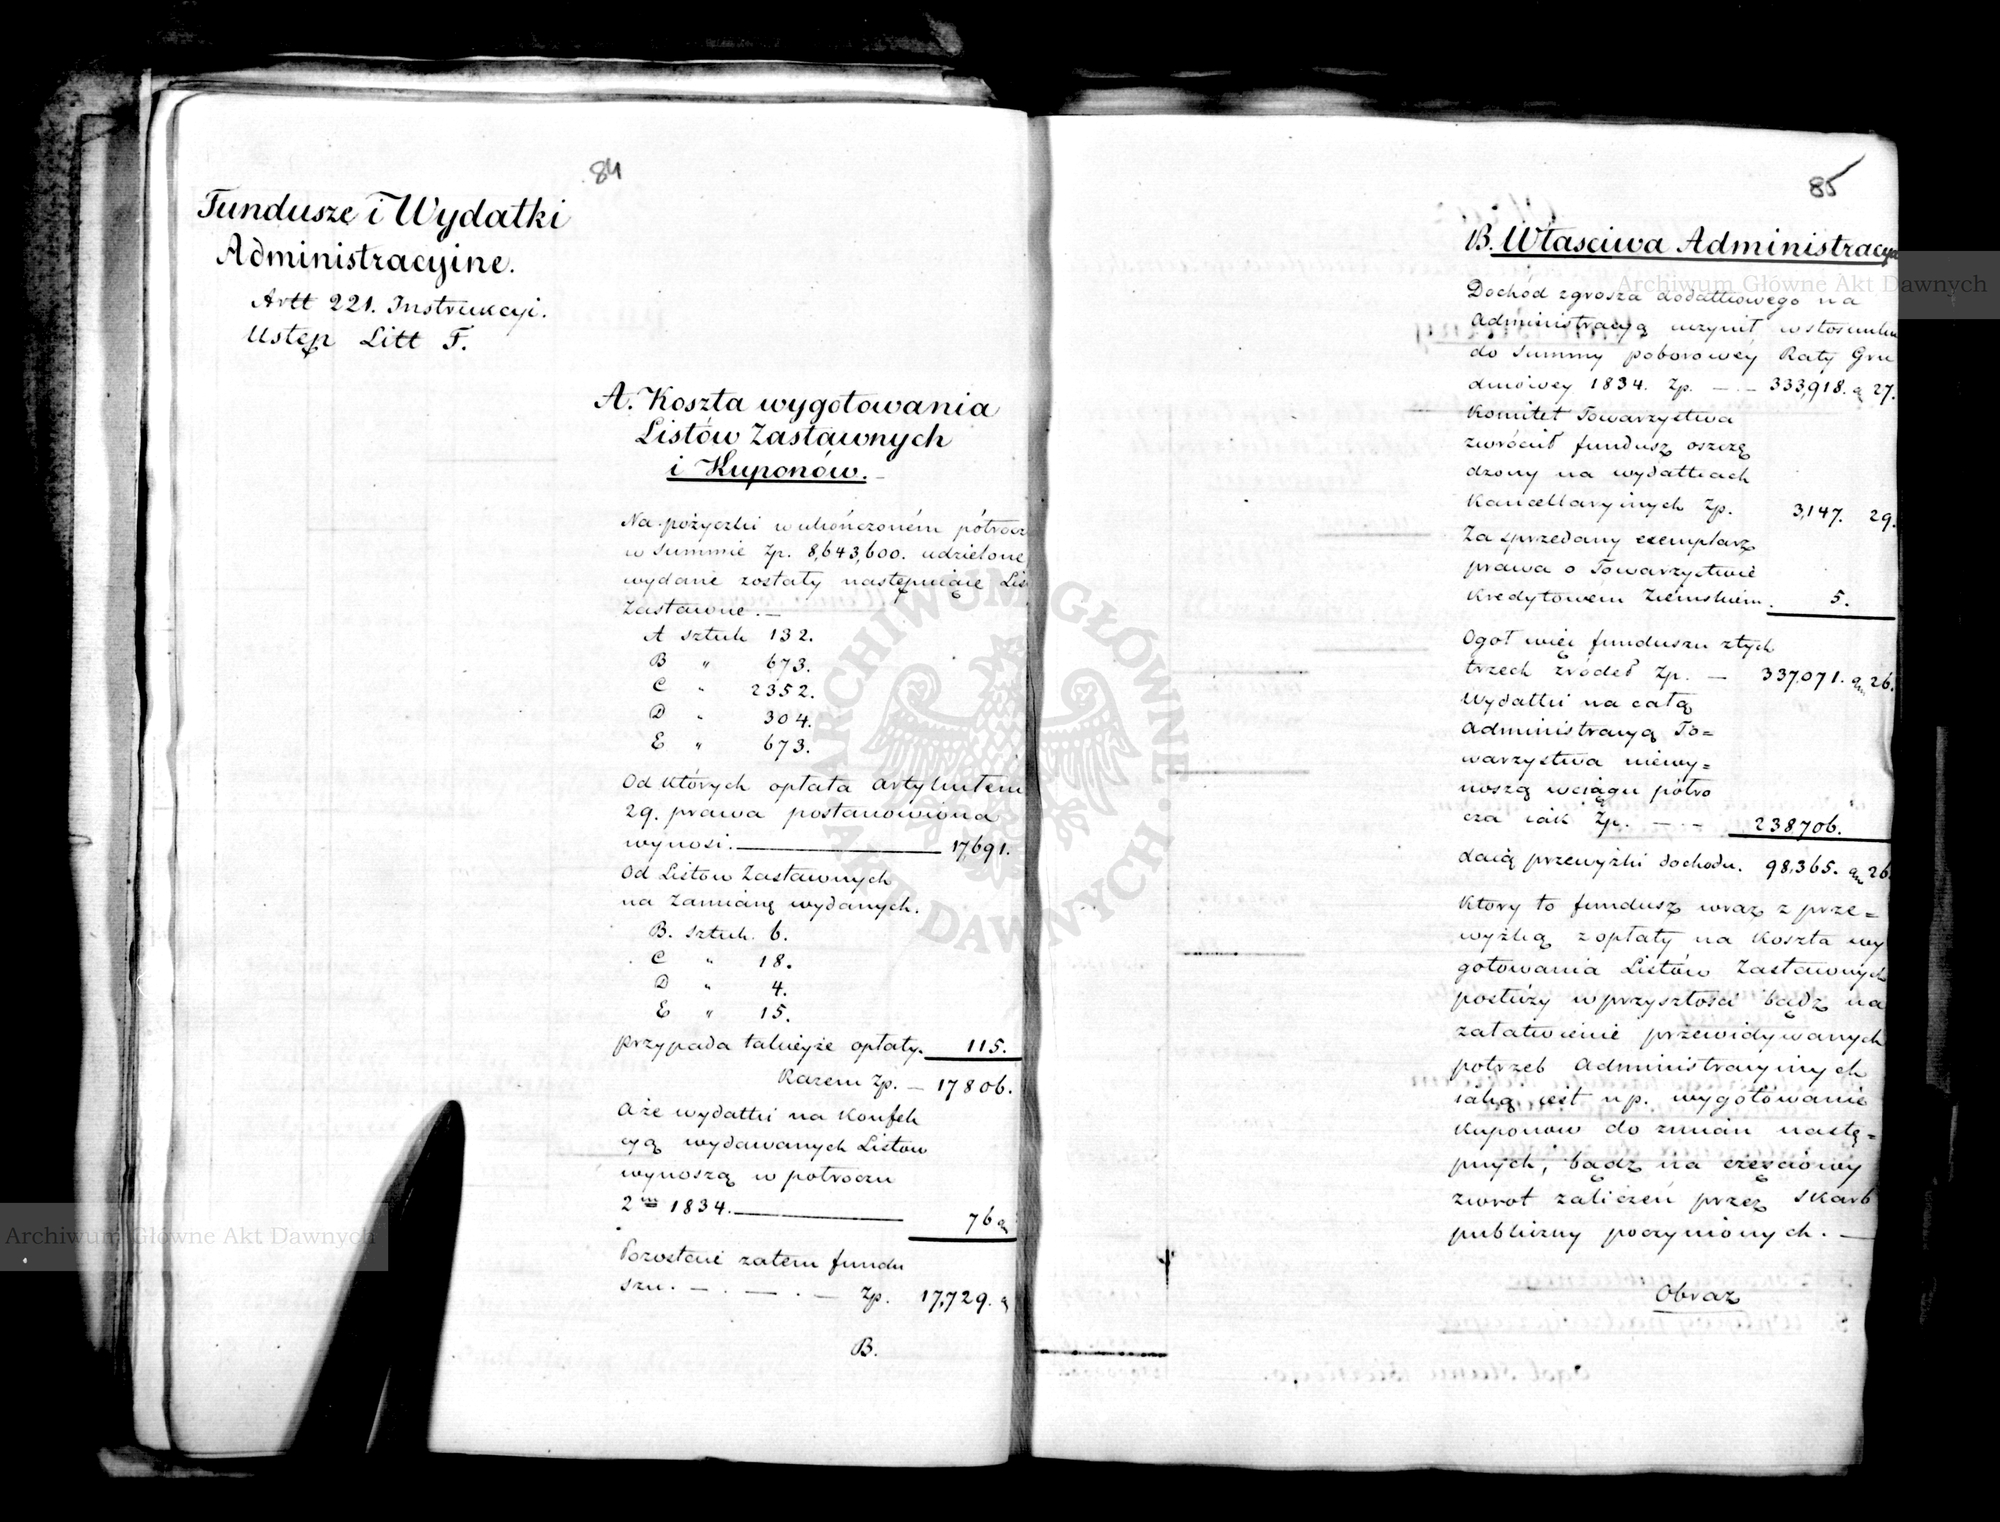 84
Fundusze i Wydatki
Administracyjne.
Artt 221. Instrukcyi.
Ustęp Litt F.
A. Koszta wygotowania
Listów Zastawnych
i Kuponów. -
Na pożyczki w ukończoném półrocz
w summie Zp. 8,643,600. udzielone
wydane zostały następuiące Lis
Zastawne. -
A sztuk 132.
B " 673.
C " 2352.
D " 304.
E " 673.
Od których opłata artykułem
29. prawa postanowiona
wynosi. — 17,691.
Od Listów Zastawnych
na zamianę wydanych.
B. sztuk. 6.
C " 18.
D " 4.
E " 15.
przypada takieyże opłaty. 115.
Razem Zp. — 17806.
A że wydatki na konfek
cyą wydawanych Listów
wynoszą w połroczu
2m 1834. — 76
Pozostaie zatem fundu
szu. — . — . — Zp. 17,729.
B.
85
B. Własciwa Administracyja
Dochód zgrosza dodatkowego na
Administracyą uczynił w stosunku
do summy poborowéy Raty Gru
dniowey 1834. Zp. — - 333,918. g 27.
Komitet Towarzystwa
zwrócił fundusz oszczę
dzony na wydatkach
Kancellaryinych Zp. 3,147. 29.
Za sprzedany exemplarz
prawa o Towarzystwie
Kredytowem Ziemskiem. 5.
Ogoł więc funduszu ztych
trzech źródeł Zp. — 337,071. gr 26.
Wydatki na całą
Administracyą To=
warzystwa niewy=
noszą wciągu półro
cza iak Zp. — - 238,706.
daią przewyżki dochodu. 98,365. gr 26.
Który to fundusz wraz z prze=
wyżką z opłaty na koszta wy
gotowania Listów Zastawnych
posłuży w przyszłości bądz na
załatwienie przewidywanych
potrzeb Administracyinych
iaką iest np. wygotowanie
Kuponów do zmian nastę=
pnych, bądz na częściowy
zwrot zaliczeń przez Skarb
publiczny poczynionych. —
Obraz
Archiwum Główne Akt Dawnych
Archiwum Główne Akt Dawnych
ARCHIWUM GŁÓWNE AKT DAWNYCH